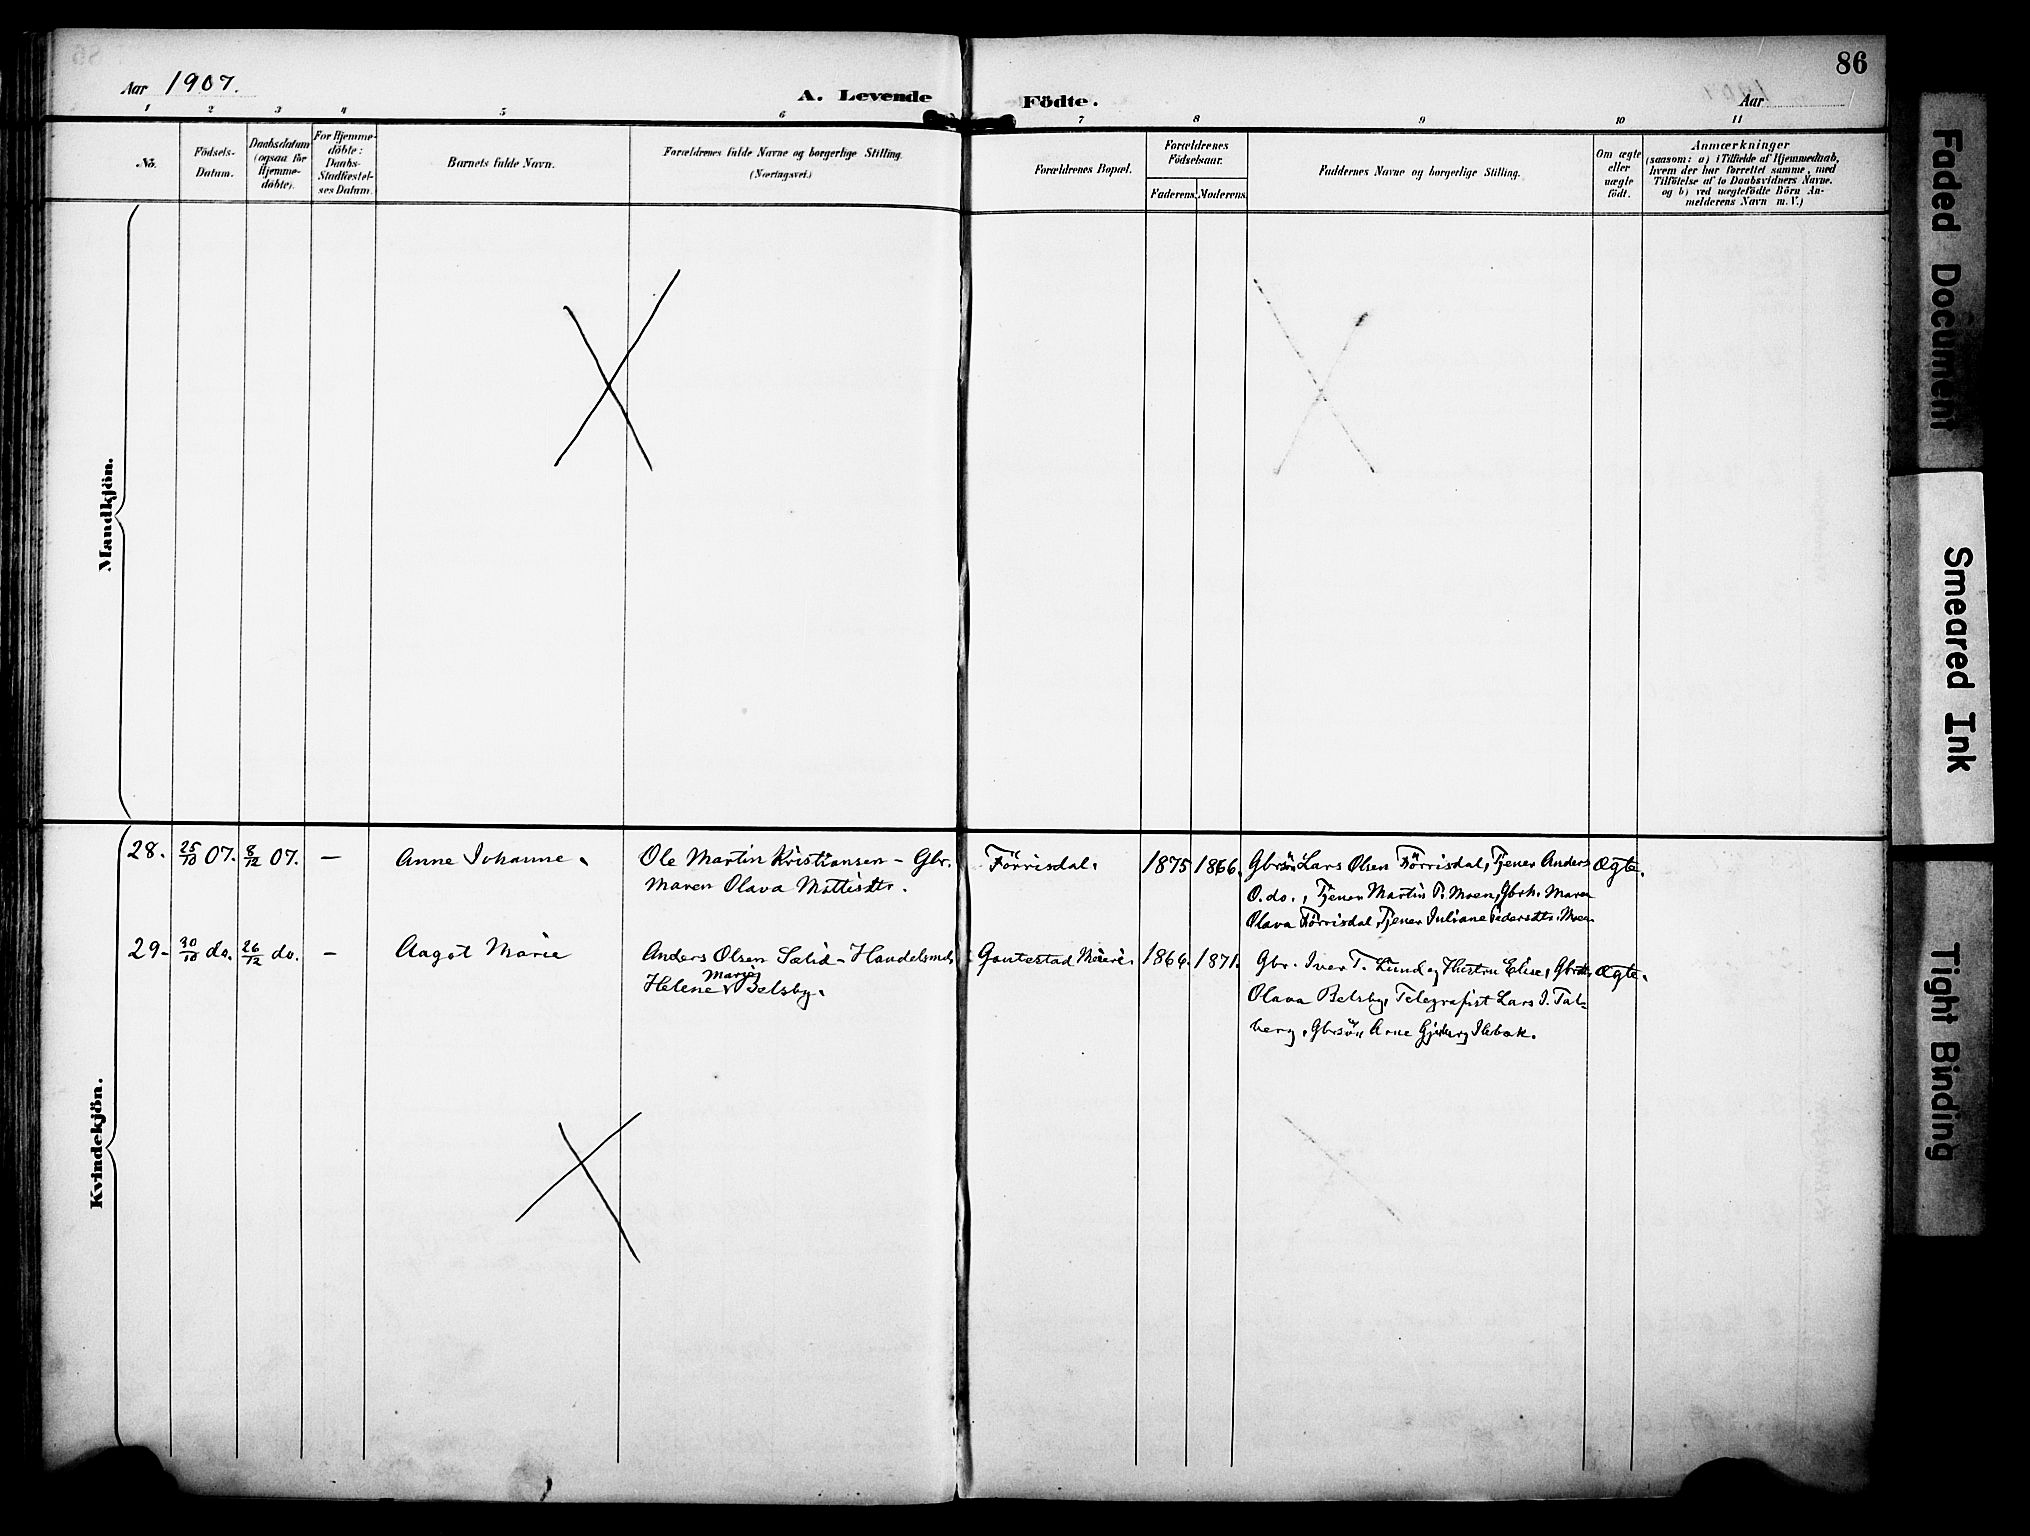 86
Aar 1907.
A. Levende Födte.
Aar
1 2 3 4 5 6 7 8 9 10 11
No.
Födsels-
Datum.
Daabsdatum
(ogsaa for
Hjemme-
döbte).
For Hjemme-
döbte:
Daabs-
Stadfæstel-
ses Datum.
Barnets fulde Navn.
Forældrenes fulde Navne og borgerlige Stilling.
(Næringsvei.)
Forældrenes Bopæl.
Forældrenes
Födselsaar.
Faderens. Moderens.
Faddernes Navne og borgerlige Stilling.
Om ægte
eller
uægte
födt.
Anmærkninger
(saasom: a) i Tilfælde af Hjemmedaab,
hvem der har forrettet samme, med
Tilföielse af to Daabsvidners Navne.
og b) ved uægtefödte Börn An-
melderens Navn m. V.)
Mandkjön.
Kvindekjön.
28. 25/10 07. 8/12 07. — Anne Johanne. Ole Martin Kristiansen - Gbr. Förrisdal. 1875 1866. Gbrsön Lars Olsen Förrisdal, Tjener Anders Ægte.
Maren Olava Mattisdtr. O. do., Tjener Martin P. Moen, Gbrk. Maren
Olava Förrisdal, Tjener Juliane Pedersdtr. Moen
29. 30/10 do. 26/12 do. — Aagot Marie Anders Olsen Sælid - Handelsmd. Gautestad 1866. 1871. Gbr. Iver T. Lund og Hustru Elise, Gbrdtr. Ægte.
Marie
Helene Belsby. Olava Belsby, Telegrafist Lars I. Tal-
berg, Gbrsön Arne
Faded Document
Smeared Ink
Tight Binding